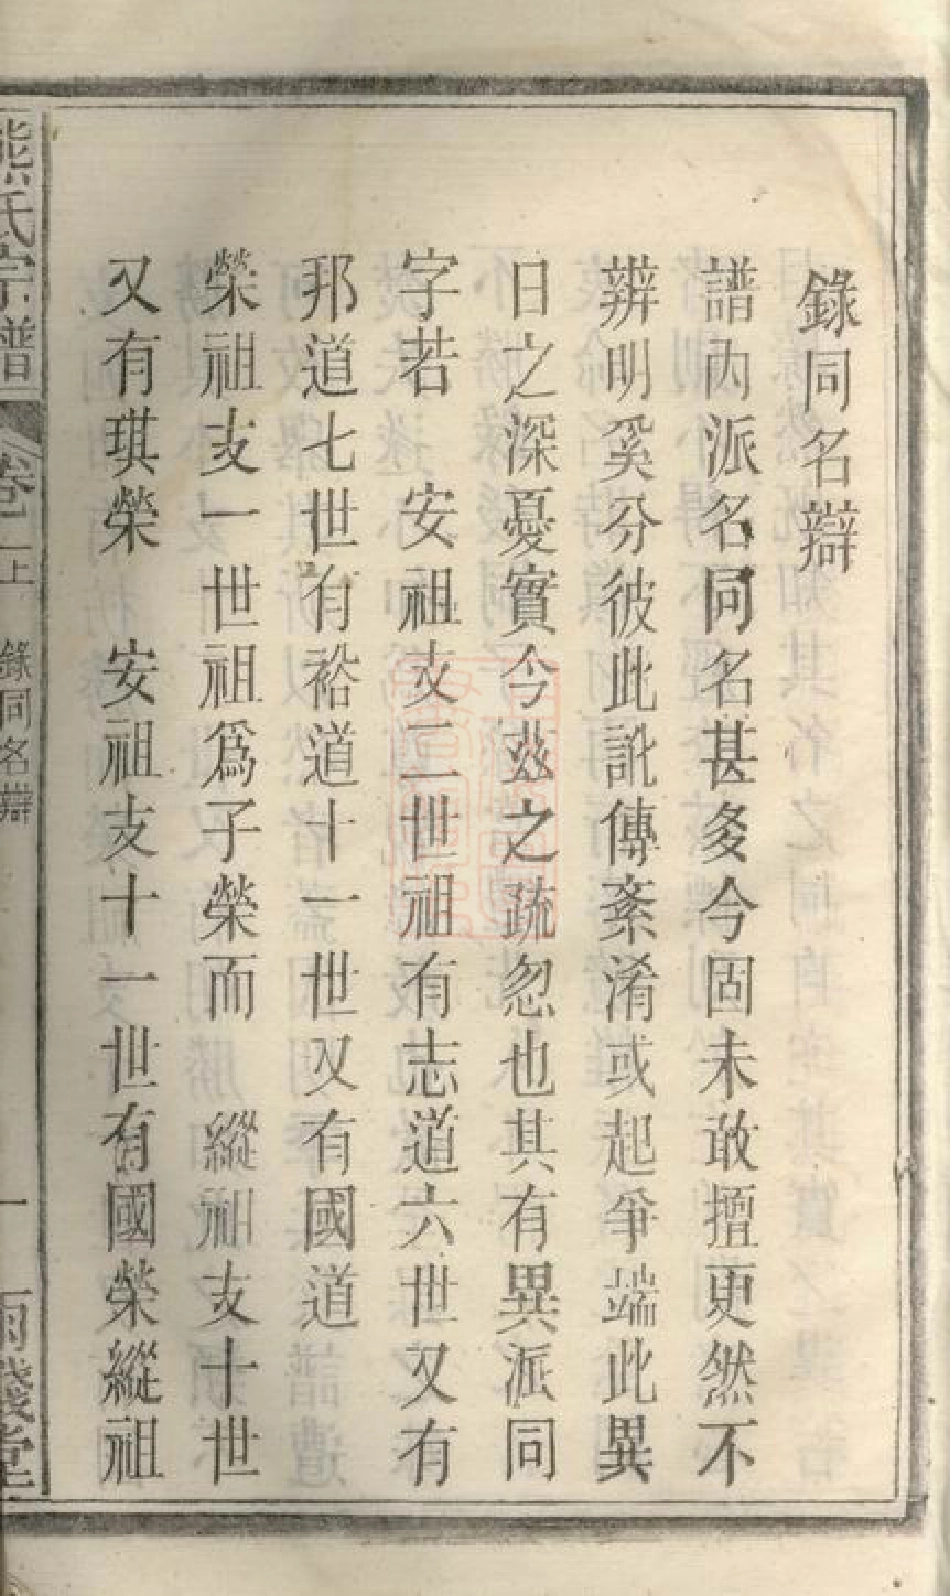 錄同名辯
譜內派名同名甚多今固未敢擅更然不
辨明奚分彼此訛傳紊淆或起爭端此異
日之深憂實今茲之疏忽也其有異派同
字若 安祖支二世祖有志道六世又有
邦道七世有裕道十一世又有國道
榮祖支一世祖爲子榮而 縱祖支十世
又有琪榮 安祖支十一世有國榮縱祖
熊氏宗譜 卷一上 錄同名辯 一 堂